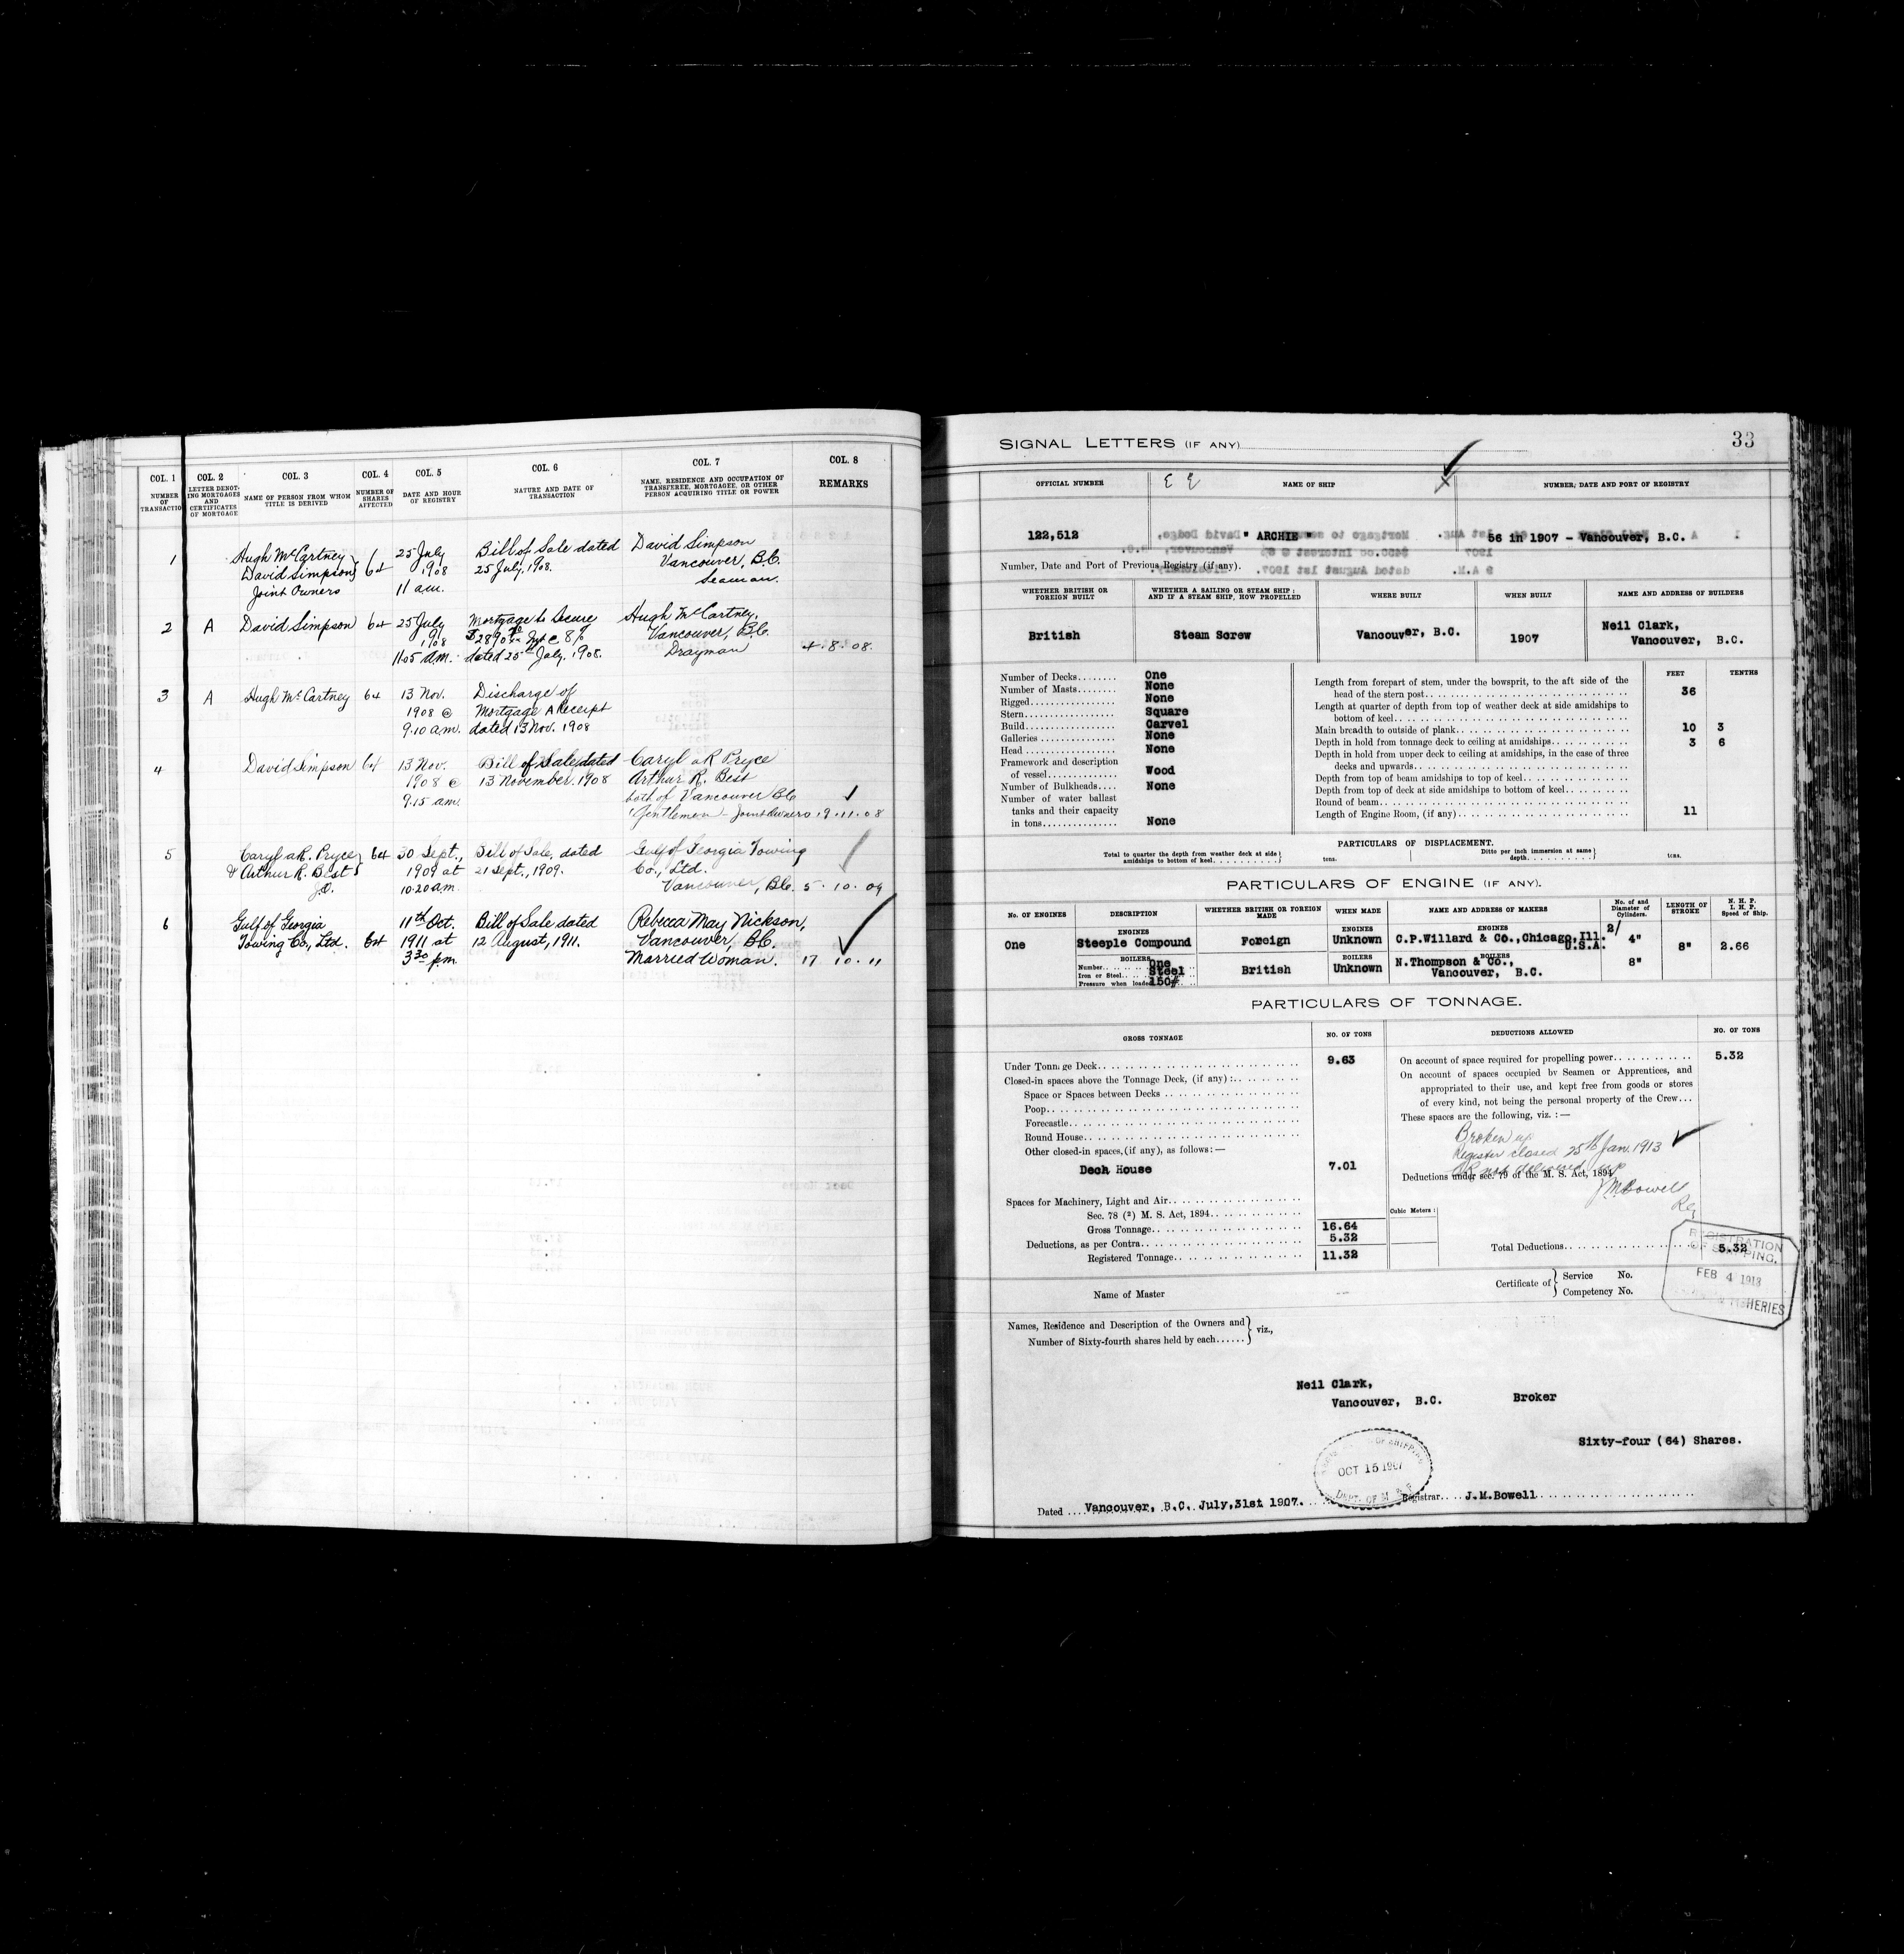 COL. 1
NUMBER OF TRANSACTION
COL. 2
LETTER DENOTING MORTGAGES AND CERTIFICATES OF MORTGAGE
COL. 3
NAME OF PERSON FROM WHOM TITLE IS DERIVED
COL. 4
NUMBER OF SHARES AFFECTED
COL. 5
DATE AND HOUR OF REGISTRY
COL. 6
NATURE AND DATE OF TRANSACTION
COL. 7
NAME, RESIDENCE AND OCCUPATION OF TRANSFEREE, MORTGAGEE, OR OTHER PERSON ACQUIRING TITLE OR POWER
COL. 8
REMARKS
1 Hugh McCartney 25 July Bill of Sale dated David Simpson
David Simpson 64 1908 25 July, 1908. Vancouver, B.C.
Joint Owners 11 a.m. Seaman.
2 A David Simpson 64 25 July Mortgage to Secure Hugh McCartney,
1908 $2890 Int @ 8% Vancouver, B.C.
11.05 a.m. dated 25th July, 1908. Drayman 4.8.08.
3 A Hugh McCartney 64 13 Nov. Discharge of
1908 @ Mortgage A receipt
9.10 a.m. dated 13 Nov. 1908
4 David Simpson 64 13 Nov. Bill of Sale dated Caryl aR Pryce
1908 @ 13 November. 1908 Arthur R. Best
9.15 a.m. both of Vancouver BC
Gentlemen - Joint Owners 19.11.08
5 Caryl aR. Pryce 64 30 Sept., Bill of Sale, dated Gulf of Georgia Towing
& Arthur R. Best 1909 at 21 Sept., 1909. Co., Ltd.
J.O. 10.20 a.m. Vancouver, B.C. 5.10.09
6 Gulf of Georgia 11th Oct. Bill of Sale dated Rebecca May Nickson,
Towing Co., Ltd. 64 1911 at 12 August, 1911. Vancouver, B.C.
3 30 p.m. Married Woman. 17 10.11
SIGNAL LETTERS (IF ANY)
33
OFFICIAL NUMBER
NAME OF SHIP
NUMBER, DATE AND PORT OF REGISTRY
122,512
" ARCHIE "
56 in 1907 - Vancouver, B.C.
Number, Date and Port of Previous Registry (if any).
WHETHER BRITISH OR FOREIGN BUILT
WHETHER A SAILING OR STEAM SHIP: AND IF A STEAM SHIP, HOW PROPELLED
WHERE BUILT
WHEN BUILT
NAME AND ADDRESS OF BUILDERS
British
Steam Screw
Vancouver, B.C.
1907
Neil Clark,
Vancouver, B.C.
Number of Decks One
Number of Masts None
Rigged None
Stern Square
Build Carvel
Galleries None
Head None
Framework and description
of vessel Wood
Number of Bulkheads None
Number of water ballast
tanks and their capacity
in tons None
FEET TENTHS
Length from forepart of stem, under the bowsprit, to the aft side of the
head of the stern post 36
Length at quarter of depth from top of weather deck at side amidships to
bottom of keel
Main breadth to outside of plank 10 3
Depth in hold from tonnage deck to ceiling at amidships 3 6
Depth in hold from upper deck to ceiling at amidships, in the case of three
decks and upwards
Depth from top of beam amidships to top of keel
Depth from top of deck at side amidships to bottom of keel
Round of beam
Length of Engine Room, (if any) 11
PARTICULARS OF DISPLACEMENT.
Total to quarter the depth from weather deck at side amidships to bottom of keel tons.
Ditto per inch immersion at same depth tons.
PARTICULARS OF ENGINE (IF ANY).
No. OF ENGINES
DESCRIPTION
WHETHER BRITISH OR FOREIGN MADE
WHEN MADE
NAME AND ADDRESS OF MAKERS
No. of and Diameter of Cylinders.
LENGTH OF STROKE
N. H. P.
I. H. P.
Speed of Ship.
ENGINES ENGINES ENGINES 2/
One Steeple Compound Foreign Unknown C.P.Willard & Co.,Chicago,Ill. U.S.A. 4" 8" 2.66
BOILERS BOILERS BOILERS
Number One
Iron or Steel Steel
Pressure when loaded 150#
British Unknown N.Thompson & Co., 8"
Vancouver, B.C.
PARTICULARS OF TONNAGE.
GROSS TONNAGE
NO. OF TONS
DEDUCTIONS ALLOWED
NO. OF TONS
Under Tonnage Deck 9.63
Closed-in spaces above the Tonnage Deck, (if any) :
Space or Spaces between Decks
Poop
Forecastle
Round House
Other closed-in spaces, (if any), as follows: —
Deck House 7.01
Spaces for Machinery, Light and Air
Sec. 78 (2) M. S. Act, 1894
Gross Tonnage 16.64
Deductions, as per Contra 5.32
Registered Tonnage 11.32
On account of space required for propelling power 5.32
On account of spaces occupied by Seamen or Apprentices, and
appropriated to their use, and kept free from goods or stores
of every kind, not being the personal property of the Crew
These spaces are the following, viz. : —
Broken up
Register closed 25th Jan. 1913
CR not delivered up
Deductions under sec. 79 of the M. S. Act, 1894
J M Bowell
Reg
Cubic Meters :
Total Deductions 5.32
REGISTRATION
OF SHIPPING.
FEB 4 1913
FISHERIES
Name of Master
Certificate of Service No.
Competency No.
Names, Residence and Description of the Owners and
Number of Sixty-fourth shares held by each viz.,
Neil Clark,
Vancouver, B.C. Broker
Sixty-four (64) Shares.
OF SHIPPING
OCT 15 1907
DEPT. OF M & F
Dated Vancouver, B.C. July,31st 1907. Registrar J.M.Bowell